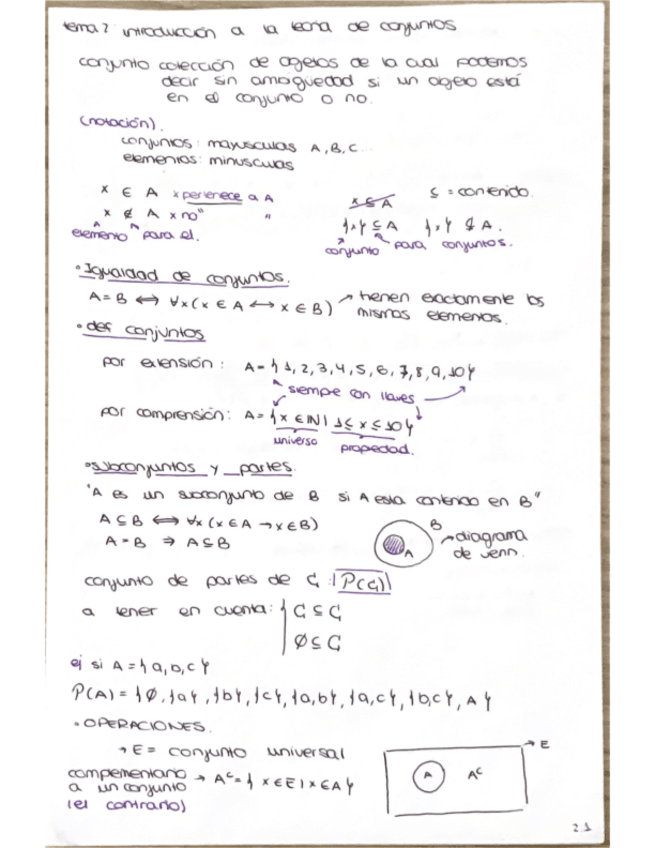 tema 2 introducción a la teoria de conjuntos
conjunto colección de objetos de la cual podemos
decir sin ambigüedad si un objeto está
en el conjunto o no.
(notación).
conjuntos: mayusculas A, B, C...
elementos: minusculas
x ∈ A x pertenece a A
x ∉ A x no " "
elemento para el.
x ⊆ A ⊆ = contenido.
{x} ⊆ A {x} ⊈ A.
conjunto para conjuntos.
• Igualdad de conjuntos.
A = B ⟷ ∀x (x ∈ A ⟷ x ∈ B) ↗ tienen exactamente los
mismos elementos.
• def conjuntos
por extensión: A = {1, 2, 3, 4, 5, 6, 7, 8, 9, 10}
siempre con llaves
por comprensión: A = {x ∈ ℕ | 1 ≤ x ≤ 10}
universo propiedad.
• subconjuntos y partes.
"A es un subconjunto de B si A esta contenido en B"
A ⊆ B ⟷ ∀x (x ∈ A → x ∈ B)
A = B ⇒ A ⊆ B
B
A
→ diagrama
de venn.
conjunto de partes de G: P(G)
a tener en cuenta: { G ⊆ G
∅ ⊆ G
ej si A = {a, b, c}
P(A) = {∅, {a}, {b}, {c}, {a, b}, {a, c}, {b, c}, A}
• OPERACIONES.
→ E = conjunto universal
complementario
a un conjunto → Aᶜ = {x ∈ E | x ∈ A}
(el contrario)
→ E
A Aᶜ
2.1